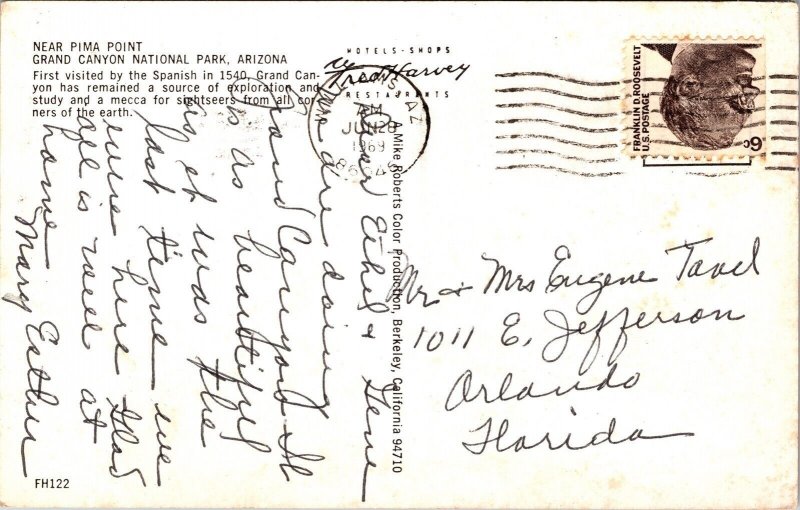 NEAR PIMA POINT
GRAND CANYON NATIONAL PARK, ARIZONA
First visited by the Spanish in 1540, Grand Can-
yon has remained a source of exploration and
study and a mecca for sightseers from all cor-
ners of the earth.
HOTELS - SHOPS
Fred Harvey
RESTAURANTS
AZ
AM
JUN 28
1969
FRANKLIN D. ROOSEVELT
U.S. POSTAGE
6c
A Mike Roberts Color Production, Berkeley, California 94710
Dear Ethel & Gene
we are doing
Grand Canyon. It
is as beautiful
as it was the
last time we
were here. Glad
all is well at
home.
Mary Esther
Mr & Mrs Eugene Tavel
1011 E. Jefferson
Orlando
Florida
FH122